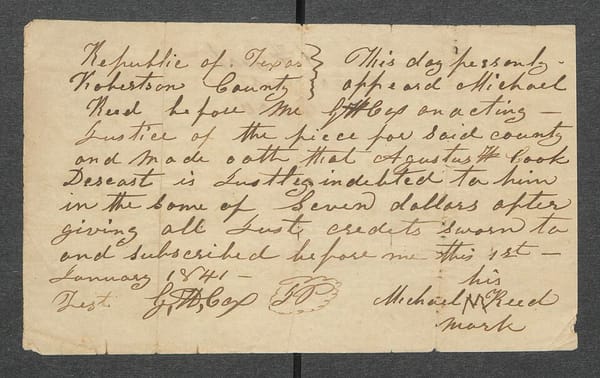 Republic of Texas } This day personly
Robertson County } appeard Michael
Reed before me G H Cox an acting —
Justice of the piece for said county
and made oath that Agustus H Cook
Desceast is Justley indebted to him
in the some of Seven dollars after
giving all Just credits sworn to
and subscribed before me this 1st —
January 1841 —
Test G, H, Cox JP
his
Michael M Reed
mark